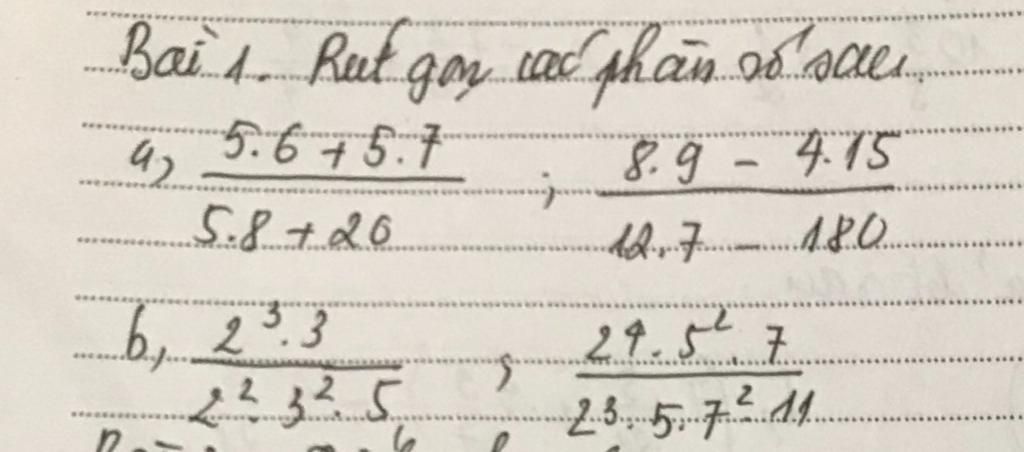 Bài 1. Rút gọn các phân số sau.
a, (5.6 + 5.7)/(5.8 + 20) ; (8.9 - 4.15)/(12.7 - 180)
b, (2³.3)/(2².3².5) ; (2⁴.5².7)/(2³.5.7².11)